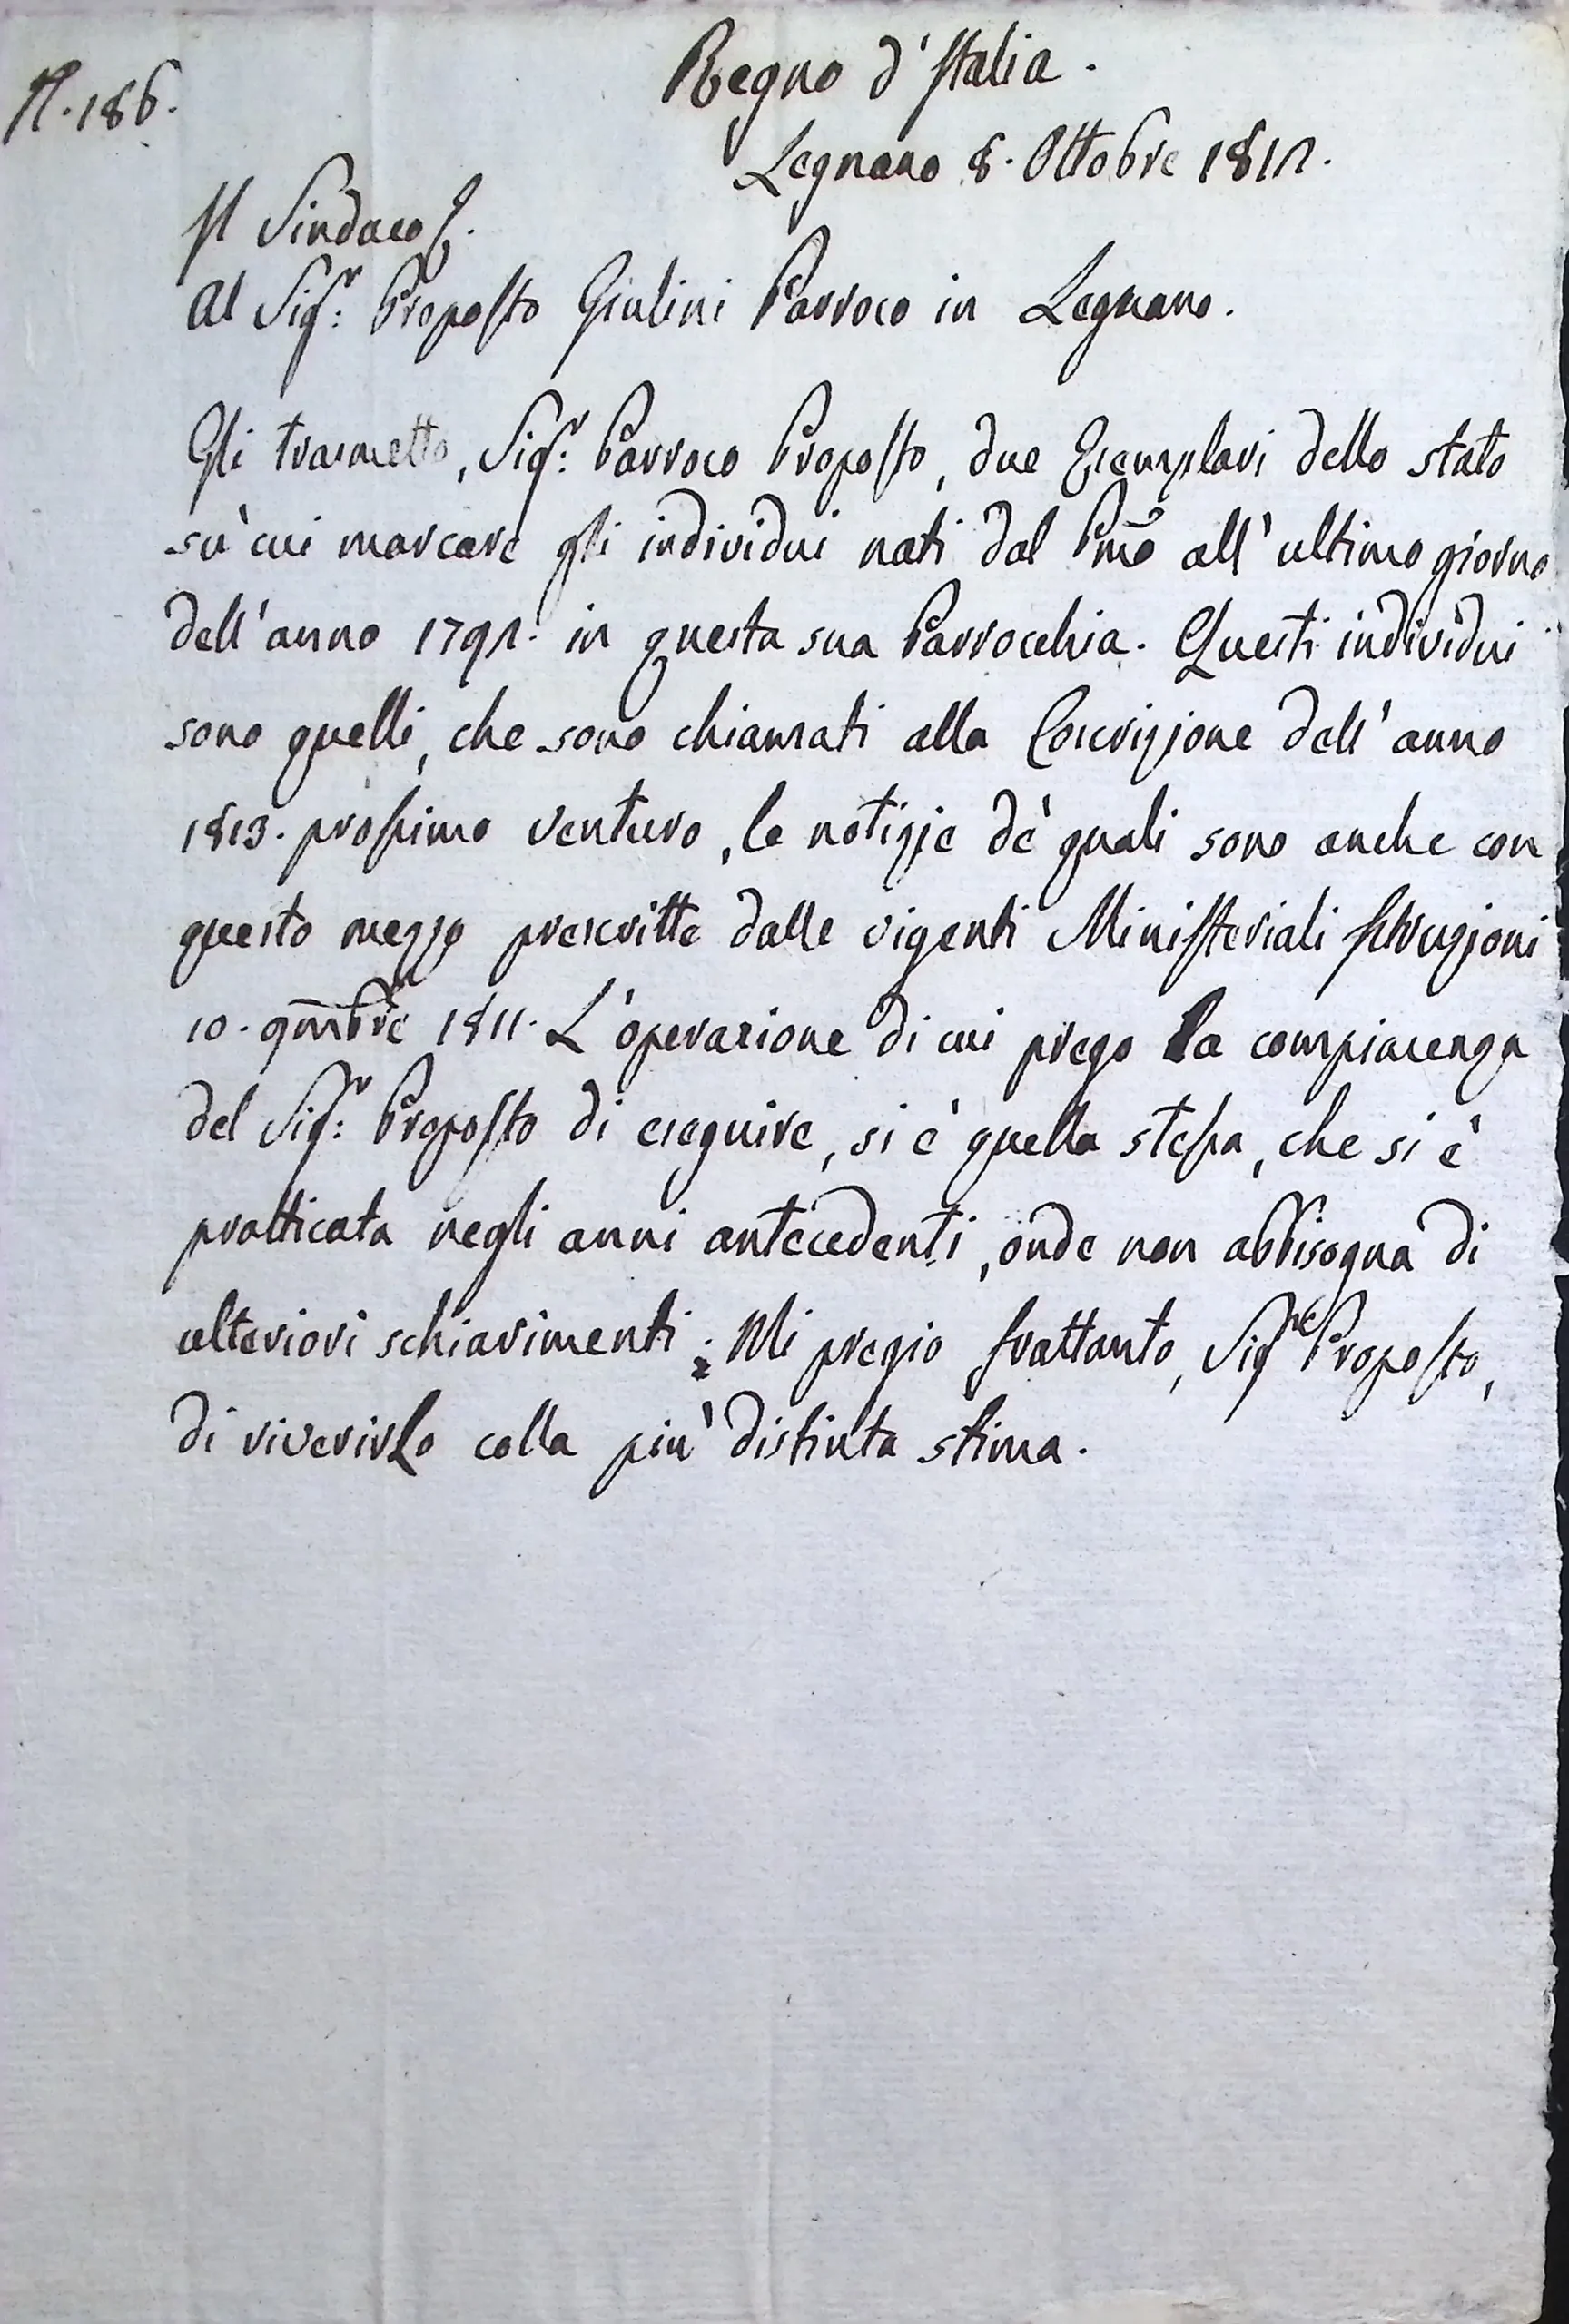 N. 186.
Regno d'Italia.
Legnano 8. Ottobre 1812.
Il Sindaco
Al Sigr: Proposto Giulini Parroco in Legnano.
Gli trasmetto, Sigr: Parroco Proposto, due Esemplari dello stato
su' cui marcare gli individui nati dal Pmo all' ultimo giorno
dell' anno 1792. in questa sua Parrocchia. Questi individui
sono quelli, che sono chiamati alla Coscrizione dell' anno
1813. prossimo venturo, le notizie de' quali sono anche con
questo mezzo prescritte dalle vigenti Ministeriali Istruzioni
10. 9mbre 1811. L'operazione di cui prego la compiacenza
del Sigr: Proposto di eseguire, si è quella stessa, che si è
pratticata negli anni antecedenti, onde non abbisogna di
ulteriori schiarimenti. Mi pregio frattanto, Sigre Proposto,
di riverirlo colla più distinta stima.